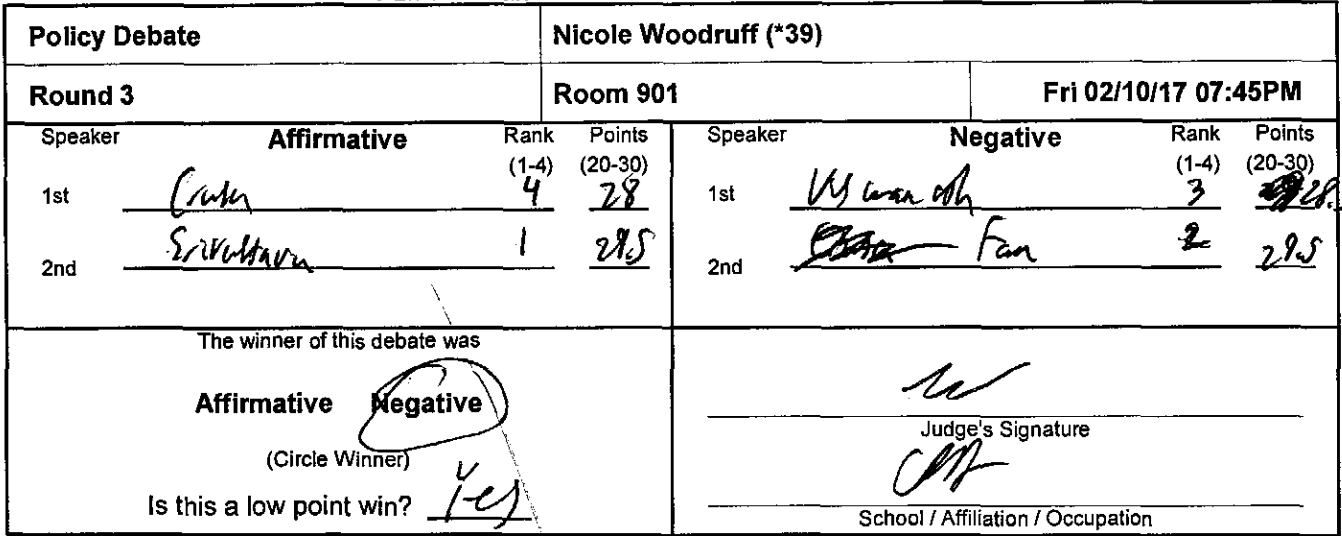 Policy Debate Nicole Woodruff (*39)
Round 3 Room 901 Fri 02/10/17 07:45PM
Speaker Affirmative Rank (1-4) Points (20-30)
1st 4 28
2nd 1 29.5
Speaker Negative Rank (1-4) Points (20-30)
1st 3 28.
2nd Fan 2 29.5
The winner of this debate was
Affirmative Negative
(Circle Winner)
Is this a low point win? Yes
Judge's Signature
School / Affiliation / Occupation